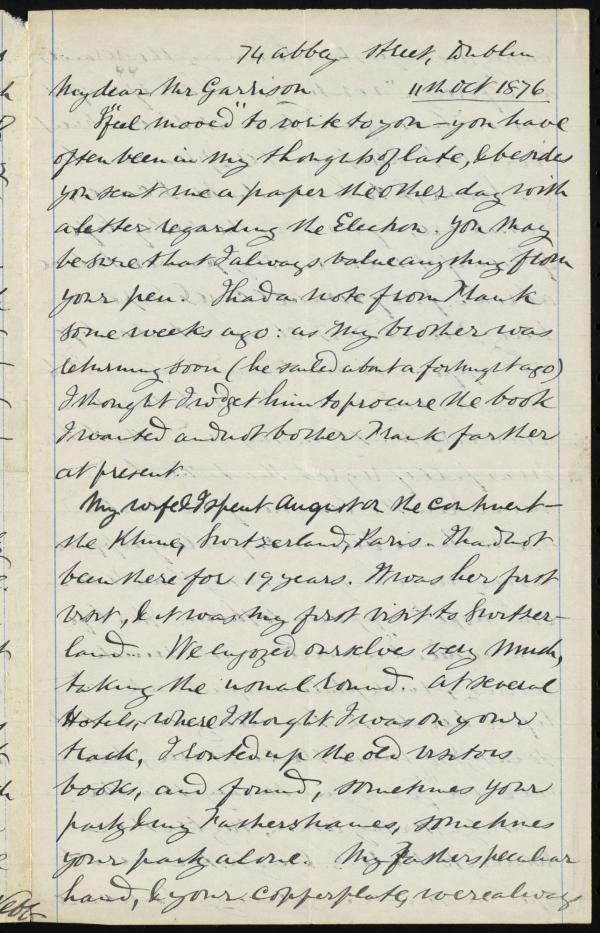 74 Abbey Street, Dublin
My dear Mr Garrison 11th Oct 1876
I "feel moved" to write to you - you have
often been in my thoughts of late, & besides
you sent me a paper the other day with
a letter regarding the Election. You may
be sure that I always value anything from
your pen. I had a note from Frank
some weeks ago: as my brother was
returning soon (he sailed about a fortnight ago)
I thought I wd get him to procure the book
I wanted and not bother Frank farther
at present.
My wife & I spent August on the continent -
the Rhine, Switzerland, Paris. I had not
been there for 19 years. It was her first
visit, & it was my first visit to Switzer-
land. We enjoyed ourselves very much,
taking the usual round. At several
Hotels, where I thought I was on your
track, I routed up the old visitors
books, and found, sometimes your
party & my Fathers names, sometimes
your party alone. My Fathers peculiar
hand, & your copperplate, were always
Webb